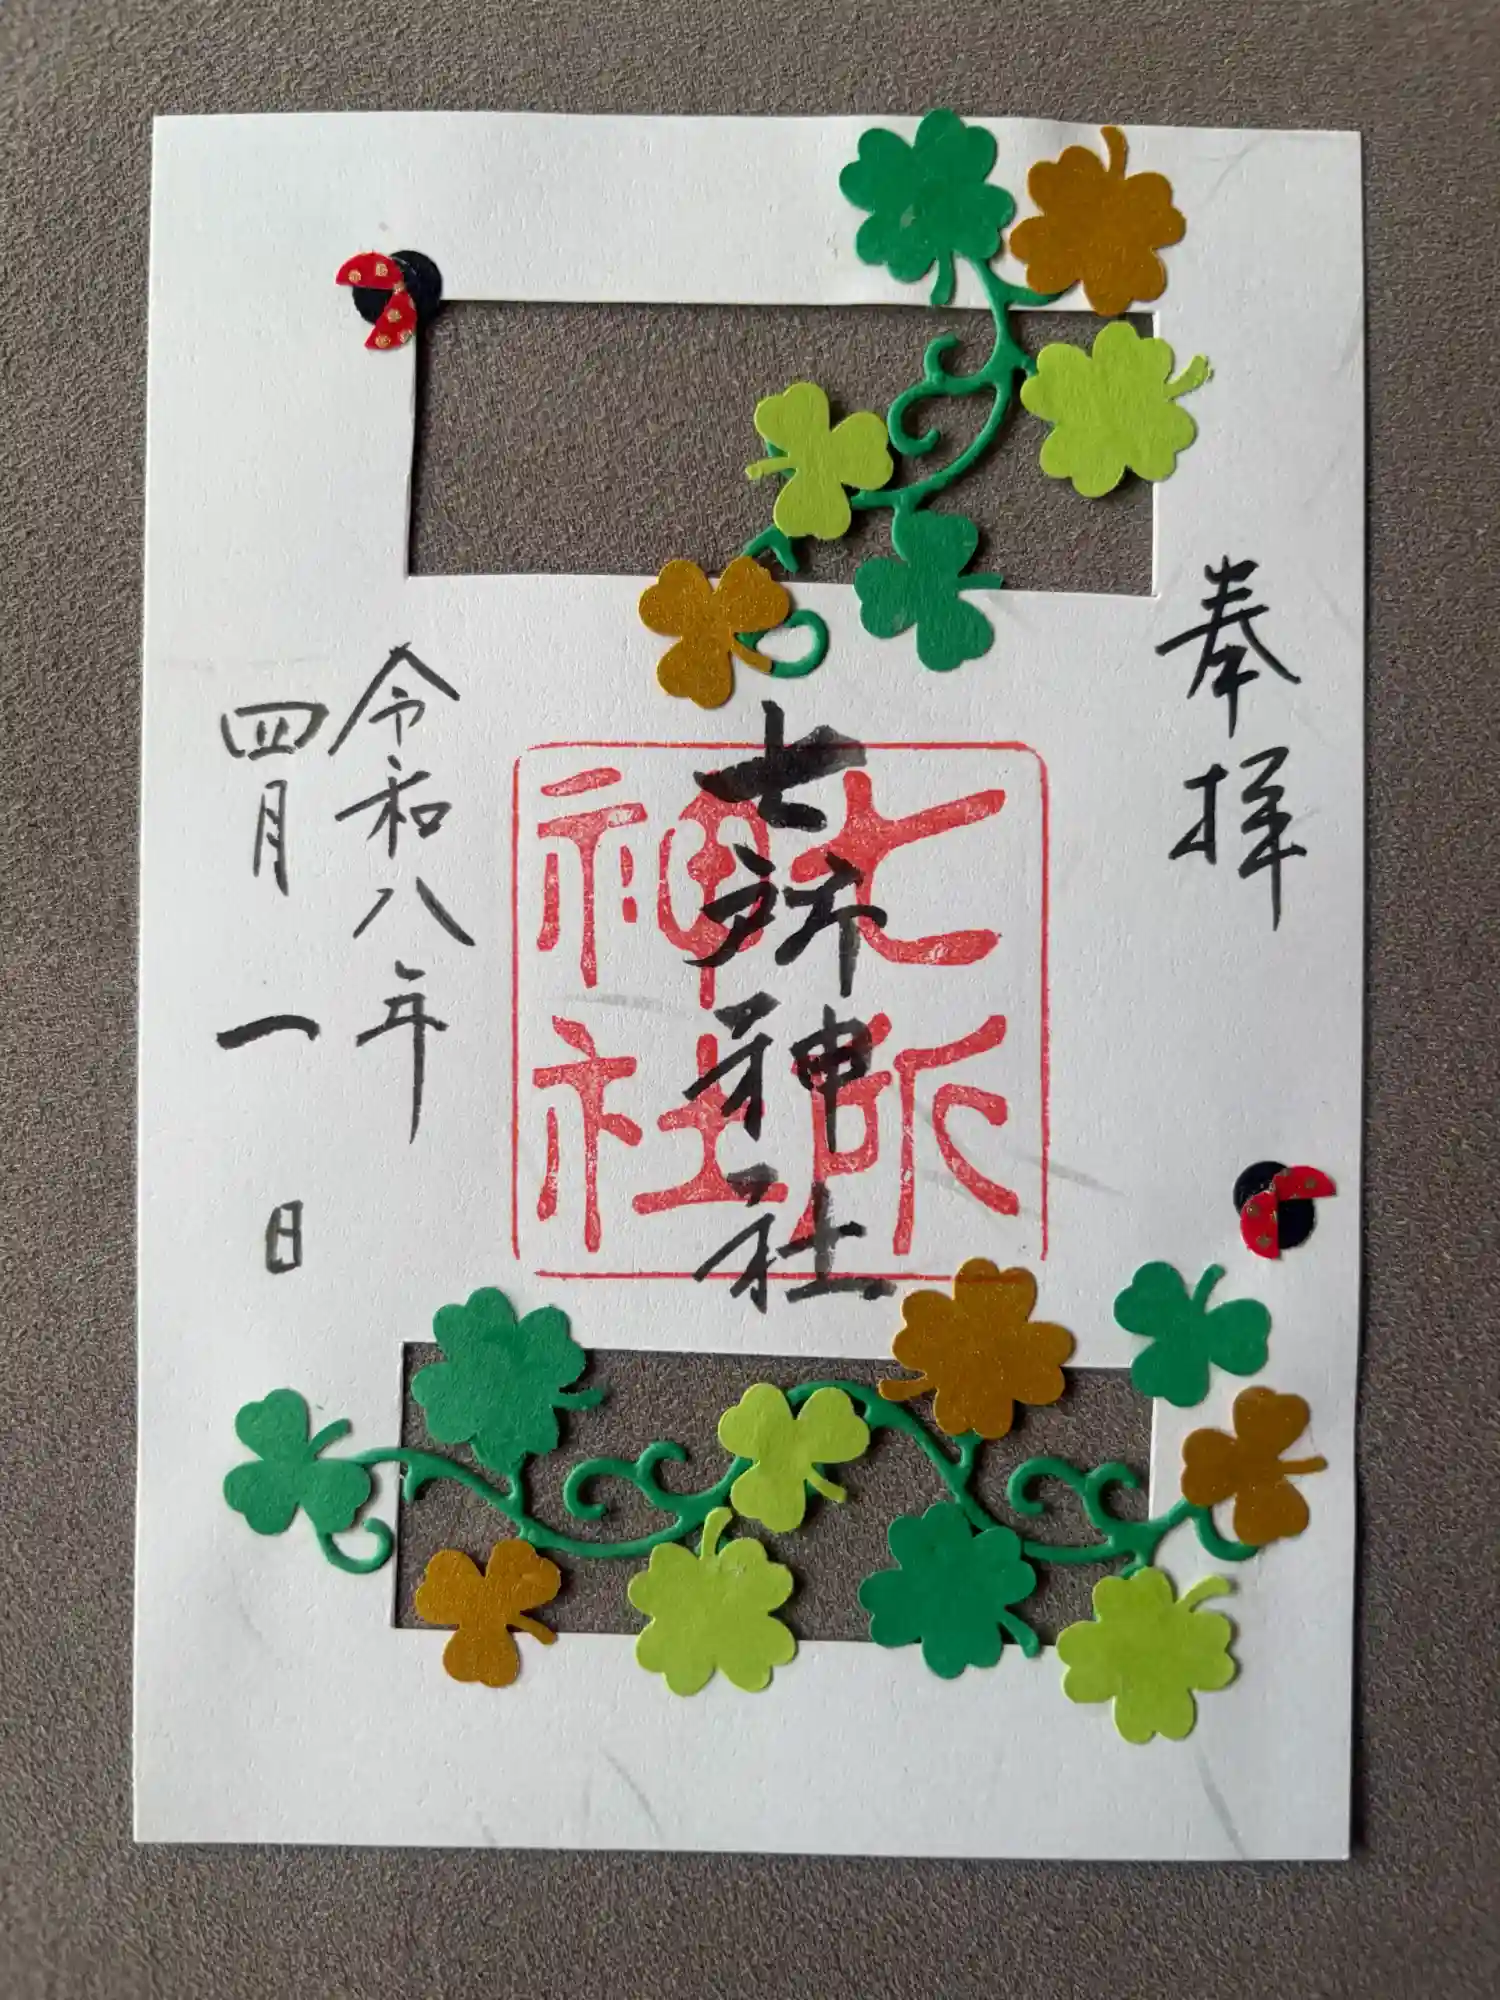 奉拝
七所神社
七所神社
令和八年
四月一日